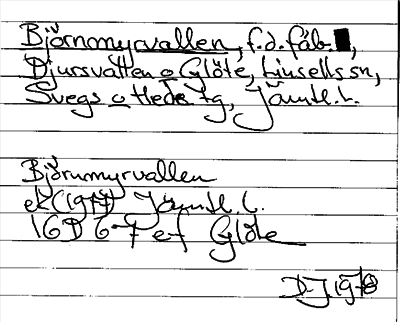 Björnmyrvallen, f.d. fäb.,
Djursvallen o Glöte, Linsells sn,
Svegs o Hede tg, Jämtl. l.
Björnmyrvallen
ek (1977) Jämtl. l.
16D 6-7 e-f Glöte
D-J. 1978